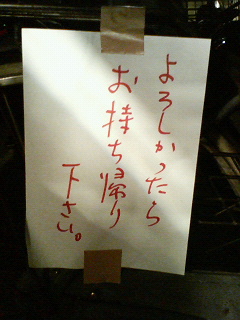 よろしかったら
お持ち帰り
下さい。